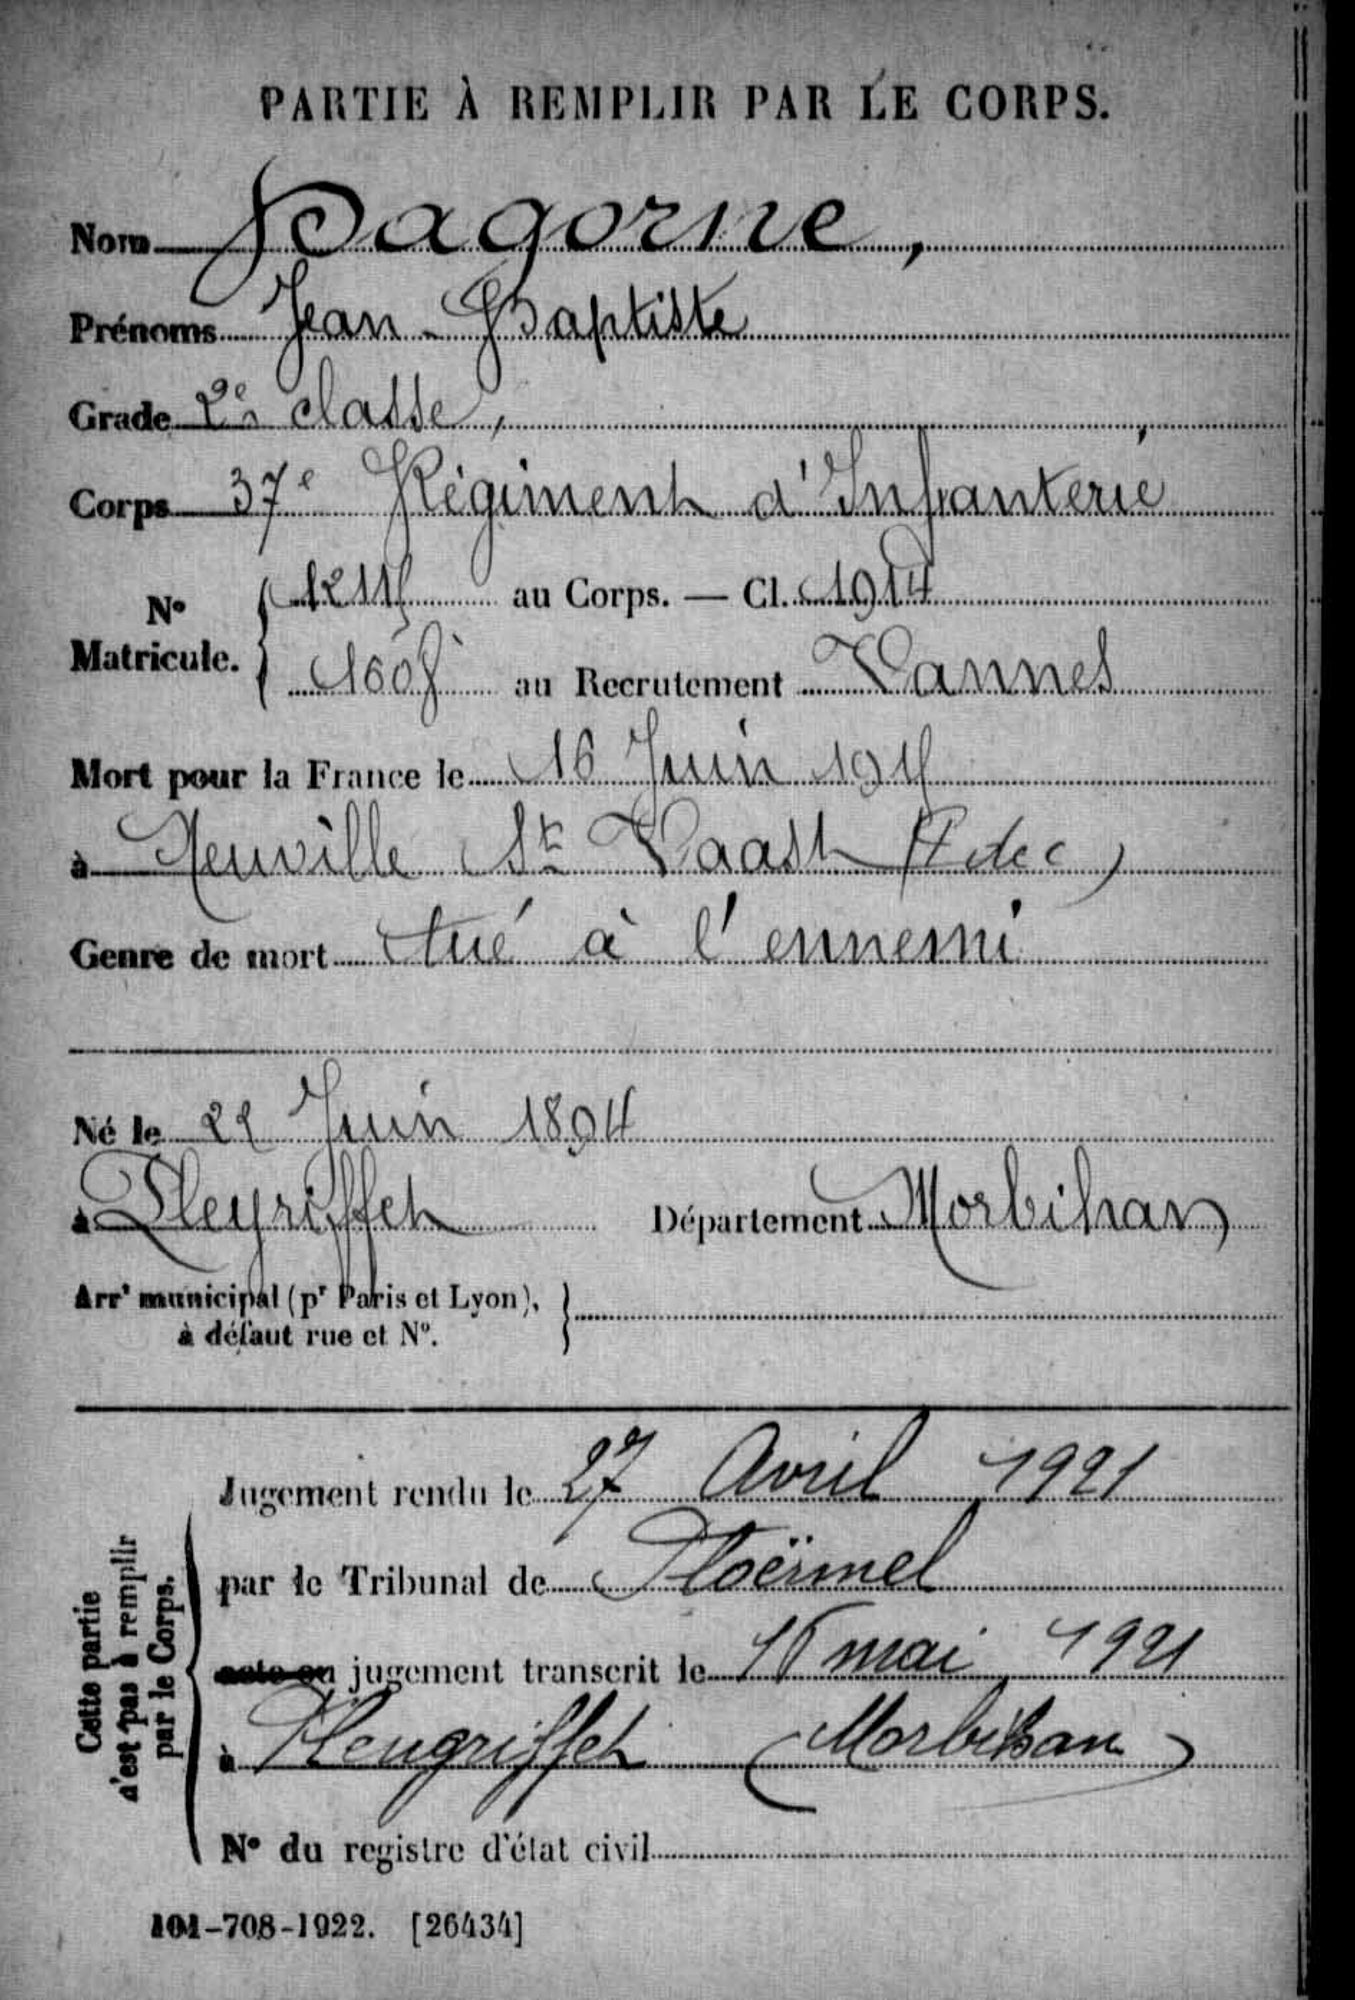 PARTIE À REMPLIR PAR LE CORPS.
Nom Dagorne,
Prénoms Jean-Baptiste
Grade 2e classe,
Corps 37e Régiment d'Infanterie
No Matricule. 12115 au Corps. — Cl. 1914
1605 au Recrutement Vannes
Mort pour la France le 16 Juin 1915
à Neuville St Vaast (P de C)
Genre de mort tué à l'ennemi
Né le 22 Juin 1894
à Pleyriffet Département Morbihan
Arrt municipal (pr Paris et Lyon),
à défaut rue et No.
Cette partie
n'est pas à remplir
par le Corps.
Jugement rendu le 27 Avril 1921
par le Tribunal de Ploërmel
acte ou jugement transcrit le 15 mai 1921
à Pleugriffet (Morbihan)
No du registre d'état civil
101-708-1922. [26434]